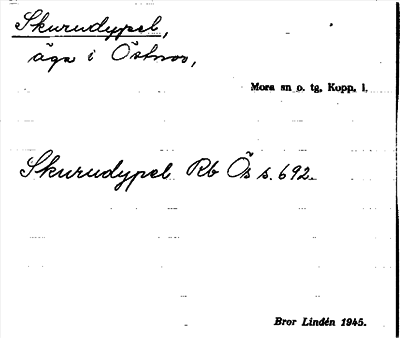 Skurudypel,
äga i Östnor,
Mora sn o. tg, Kopp. l.
Skurudypel Rb Ös s. 692.
Bror Lindén 1945.